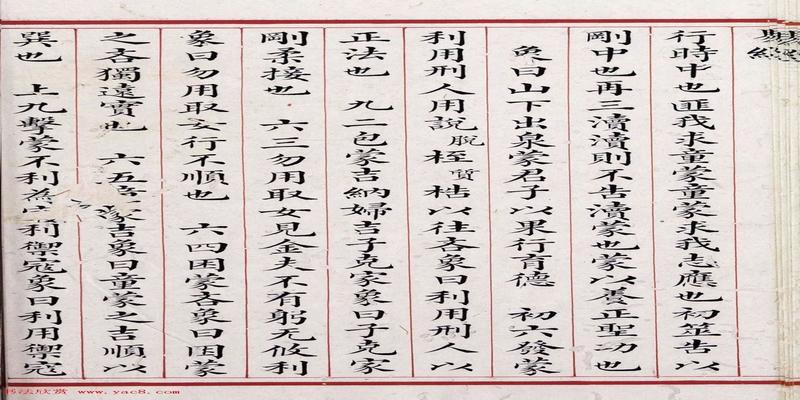 易經
行時中也匪我求童蒙童蒙求我志應也初筮告以
剛中也再三瀆瀆則不告瀆蒙也蒙以養正聖功也
象曰山下出泉蒙君子以果行育德 初六發蒙
利用刑人用說脫桎質梏以往吝象曰利用刑人以
正法也 九二包蒙吉納婦吉子克家象曰子克家
剛柔接也 六三勿用取女見金夫不有躬无攸利
象曰勿用取女行不順也 六四困蒙吝象曰困蒙
之吝獨遠實也 六五童蒙吉象曰童蒙之吉順以
巽也 上九擊蒙不利為利禦寇象曰利用禦寇
书法欣赏 www.yac8.com